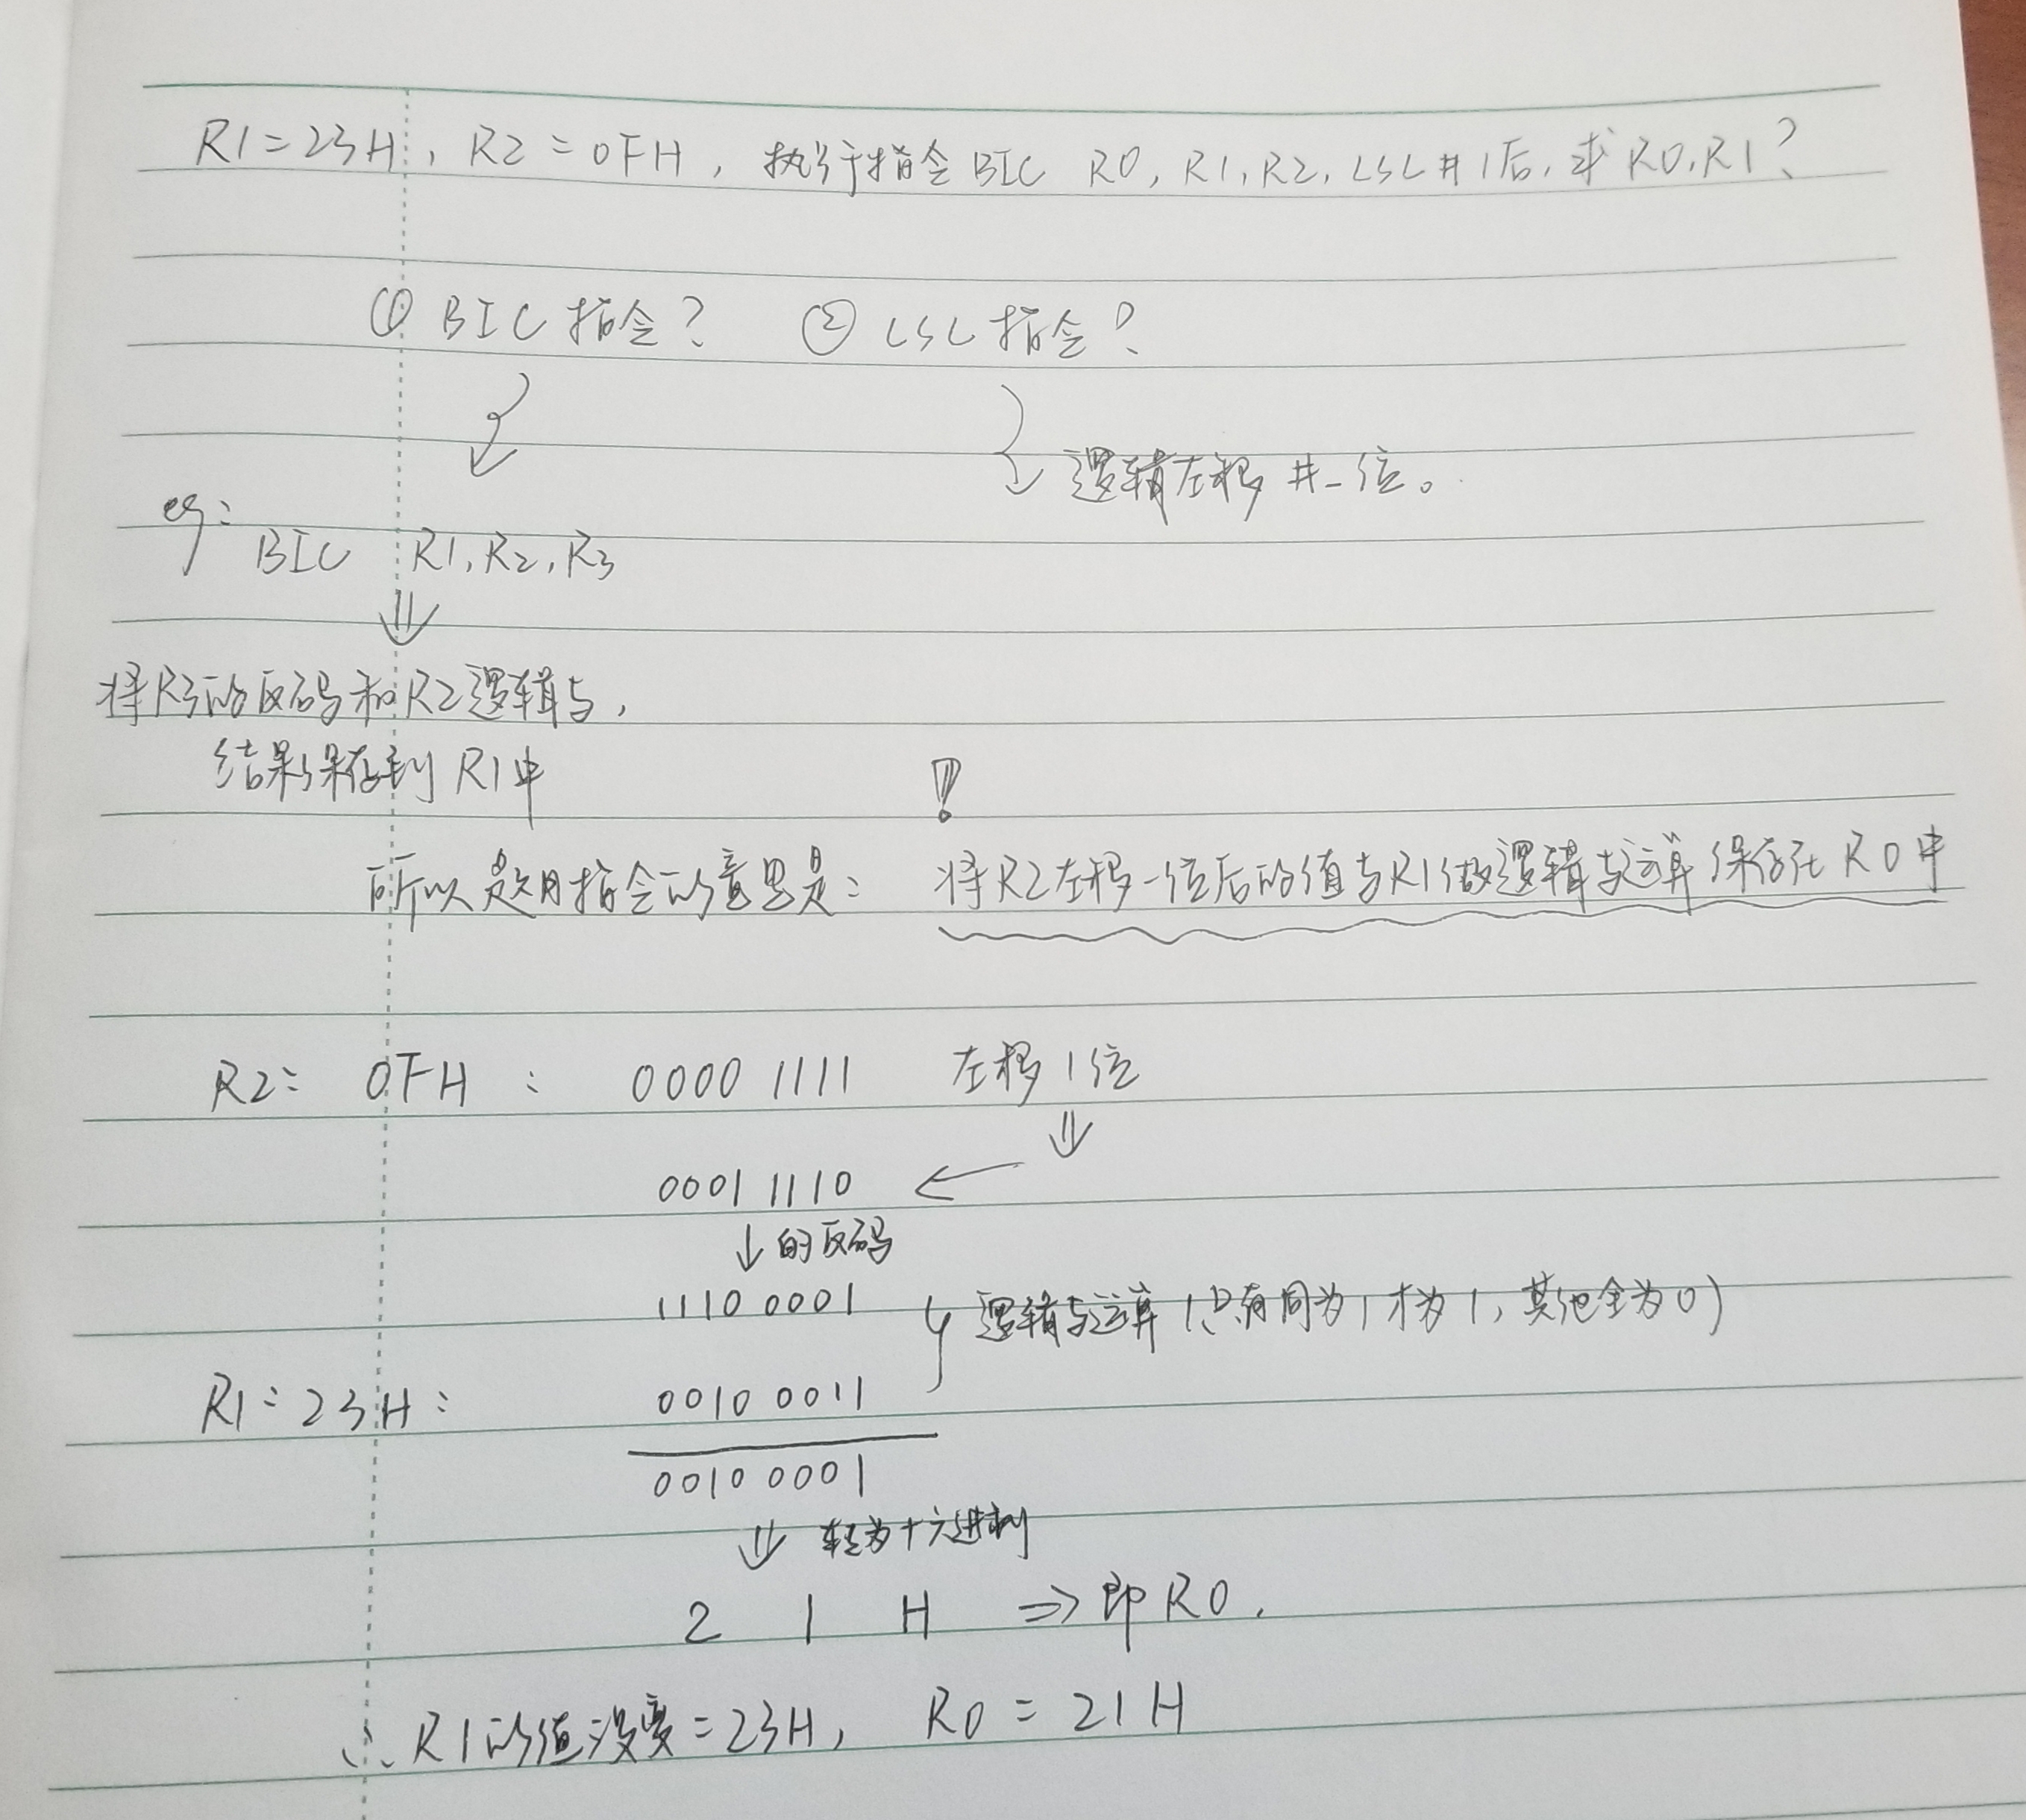 R1=23H, R2=0FH, 执行指令 BIC R0, R1, R2, LSL #1后, 求R0, R1?
① BIC 指令? ② LSL 指令?
逻辑左移 #一位。
eg:
BIC R1, R2, R3
将R3的反码和R2逻辑与,
结果保存到 R1中
!
所以题目指令的意思是: 将R2左移一位后的值与R1做逻辑与运算保存在R0中
R2: 0FH : 0000 1111 左移1位
0001 1110
的反码
1110 0001 逻辑与运算(只有同为1才为1, 其他全为0)
R1: 23H: 0010 0011
0010 0001
转为十六进制
2 1 H ⇒ 即 R0.
∴ R1的值没变=23H, R0 = 21H